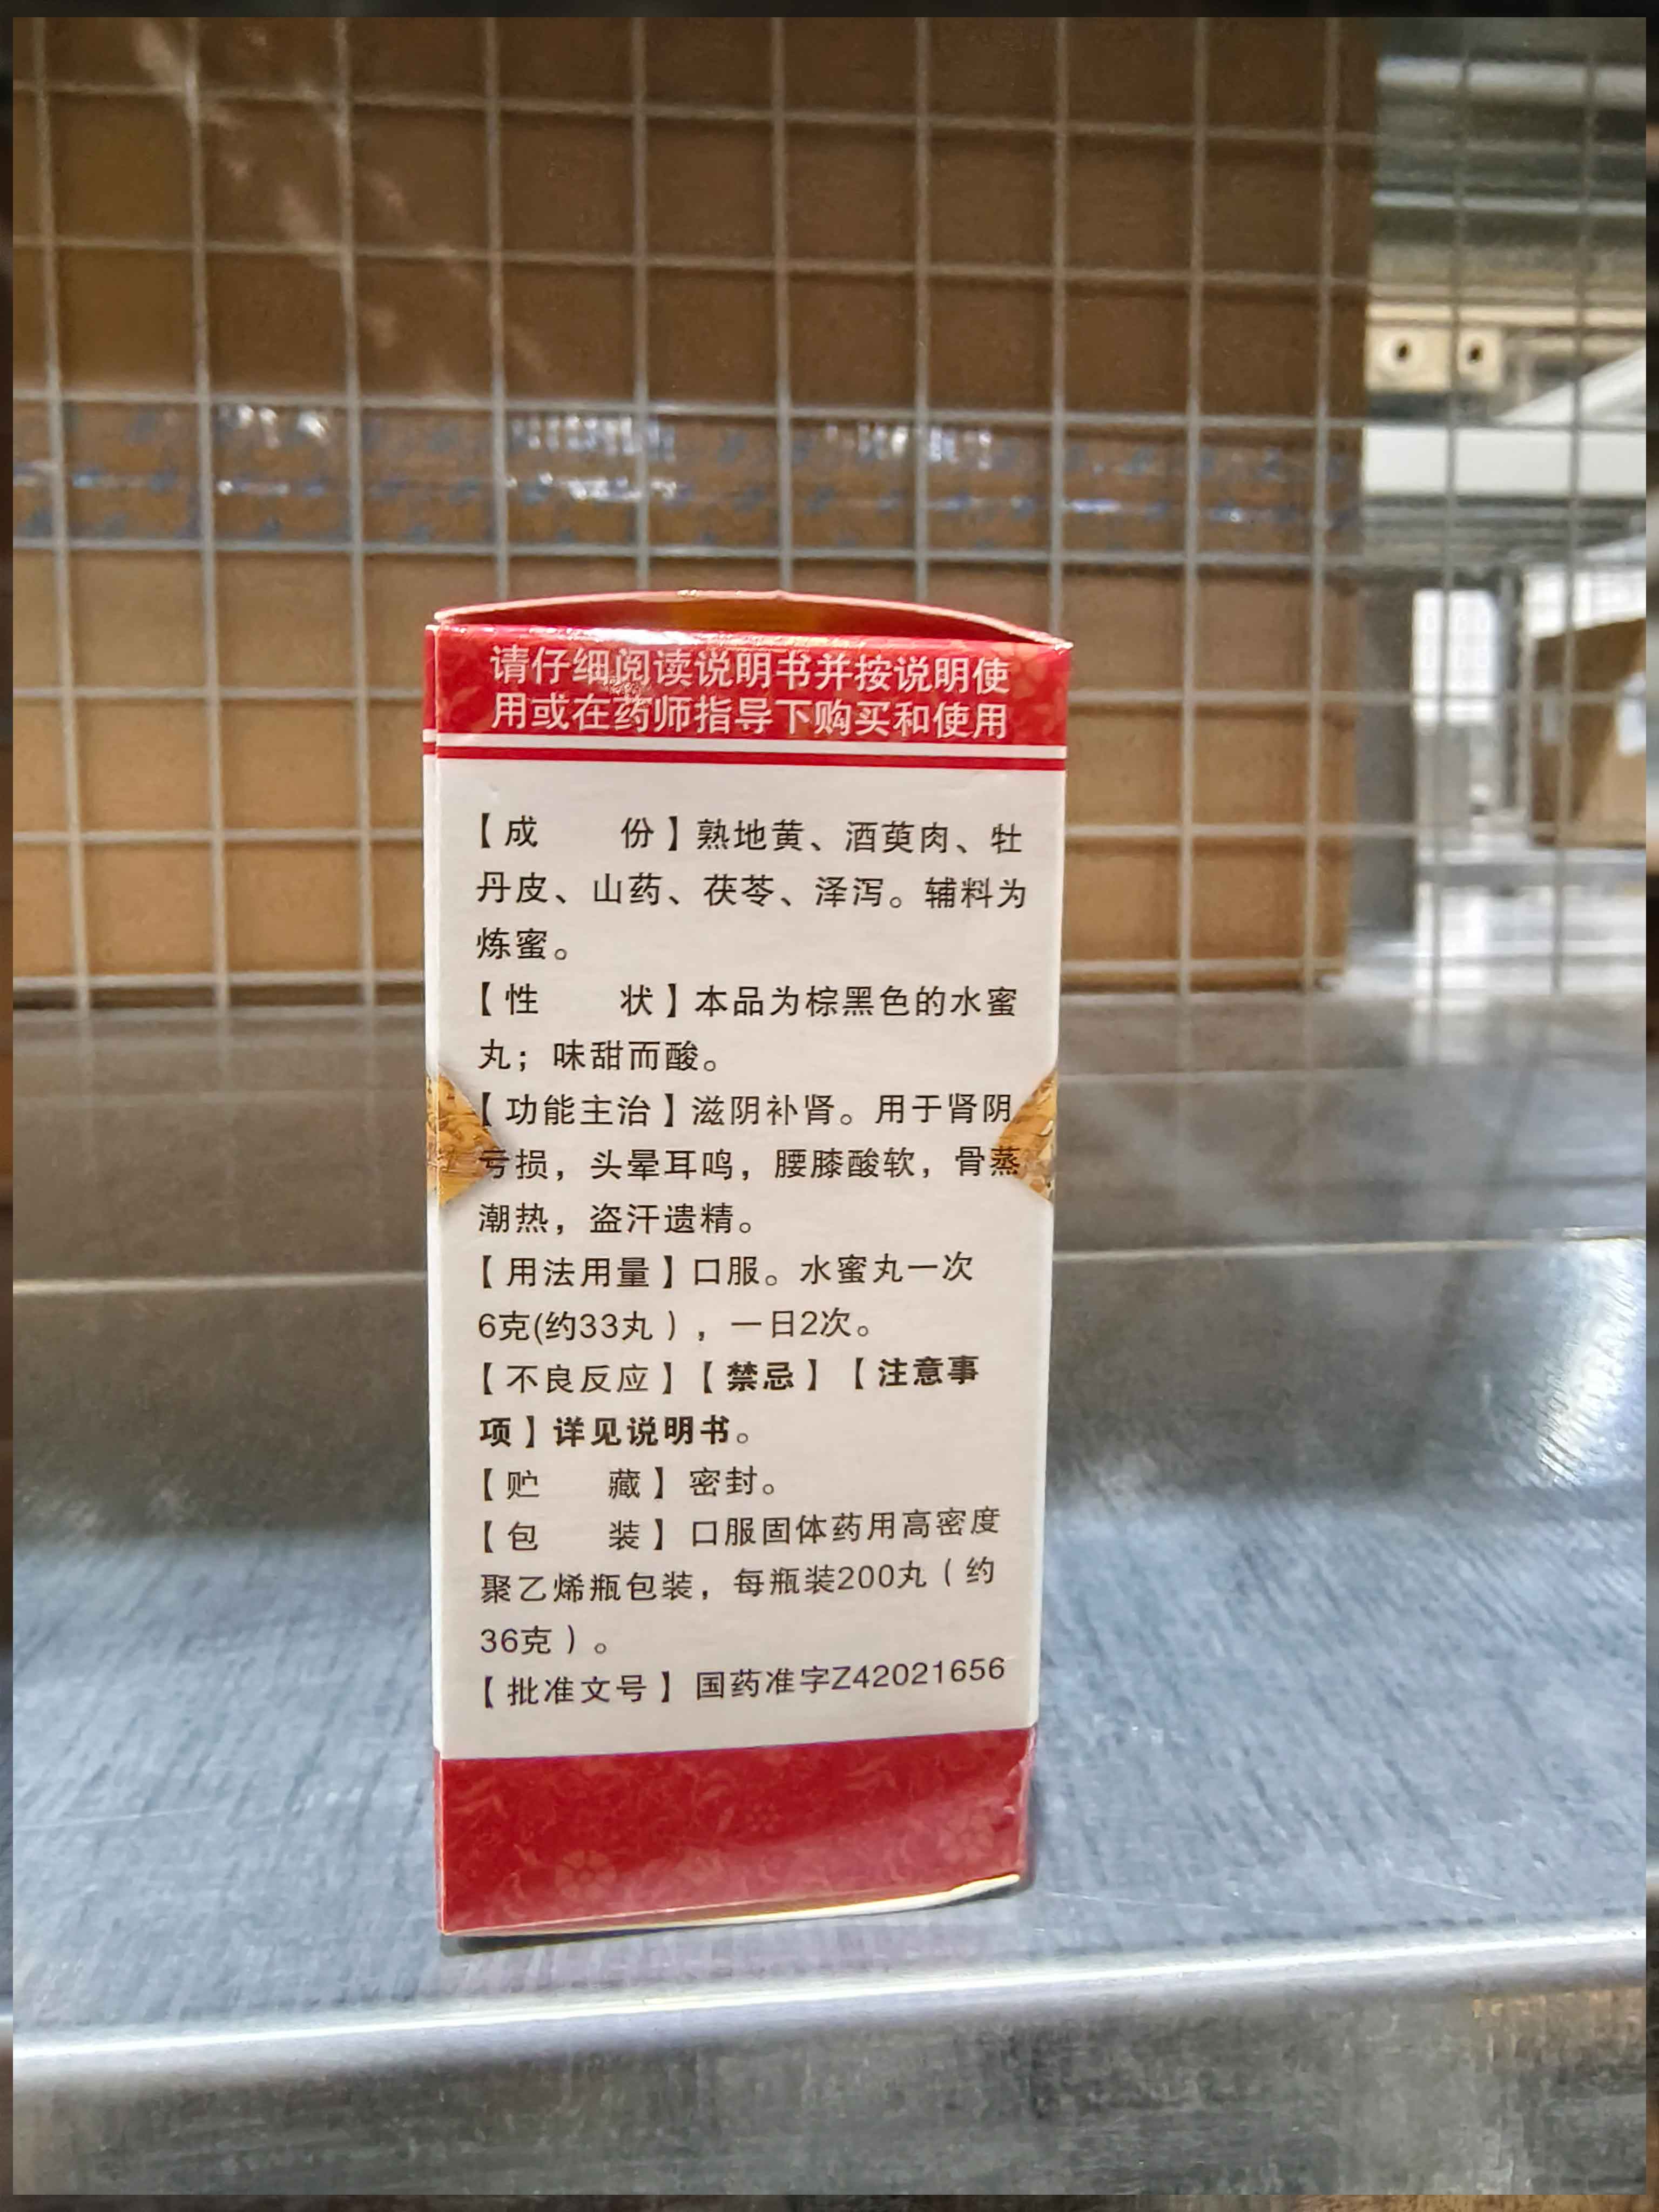 请仔细阅读说明书并按说明使
用或在药师指导下购买和使用
【成　　份】熟地黄、酒萸肉、牡
丹皮、山药、茯苓、泽泻。辅料为
炼蜜。
【性　　状】本品为棕黑色的水蜜
丸；味甜而酸。
【功能主治】滋阴补肾。用于肾阴
亏损，头晕耳鸣，腰膝酸软，骨蒸
潮热，盗汗遗精。
【用法用量】口服。水蜜丸一次
6克(约33丸），一日2次。
【不良反应】【禁忌】【注意事
项】详见说明书。
【贮　　藏】密封。
【包　　装】口服固体药用高密度
聚乙烯瓶包装，每瓶装200丸（约
36克）。
【批准文号】国药准字Z42021656